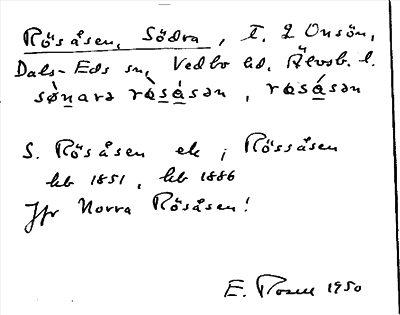 Rösåsen, Södra, T. 2 Onsön,
Dals-Eds sn, Vedbo hd, Älvsb. l.
sønara rɵsåsən, rɵsåsən
S. Rösåsen ek ; Rössåsen
kb 1851, kb 1886
Jfr Norra Rösåsen!
E. Rosell 1950